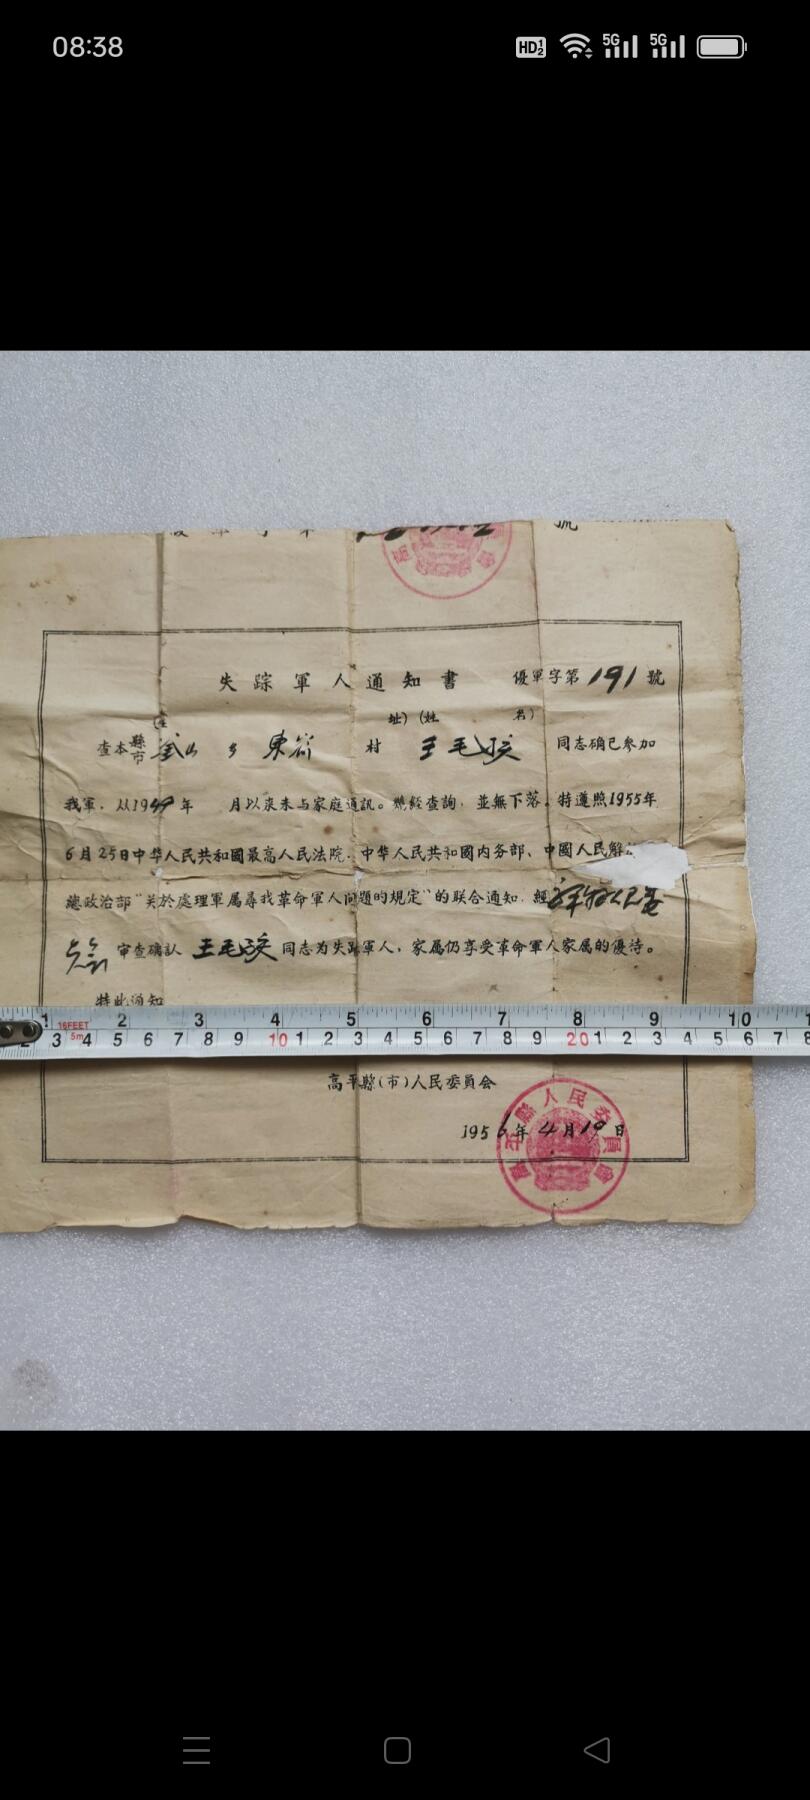 08:38
HD 5G 5G
號
失踪軍人通知書 優軍字第191號
(住 址)(姓 名)
查本縣市 釜山乡 東 村 王毛孩 同志确已参加
我軍,从1949年 月以来未与家庭通訊。  經查詢,並無下落。特遵照1955年
6月25日中华人民共和國最高人民法院、中华人民共和國内务部、中國人民解
總政治部“关於處理軍属尋找革命軍人问題的規定”的联合通知,經 人民委
員會 审查确认 王毛孩 同志为失踪軍人,家属仍享受革命軍人家属的優待。
特此通知
1 2 3 4 5 6 7 8 9 10 1
16FEET 5m
2 3 4 5 6 7 8 9 10 1 2 3 4 5 6 7 8 9 20 1 2 3 4 5 6 7 8
高平縣(市)人民委員会
1956年4月19日
高平縣人民委員會